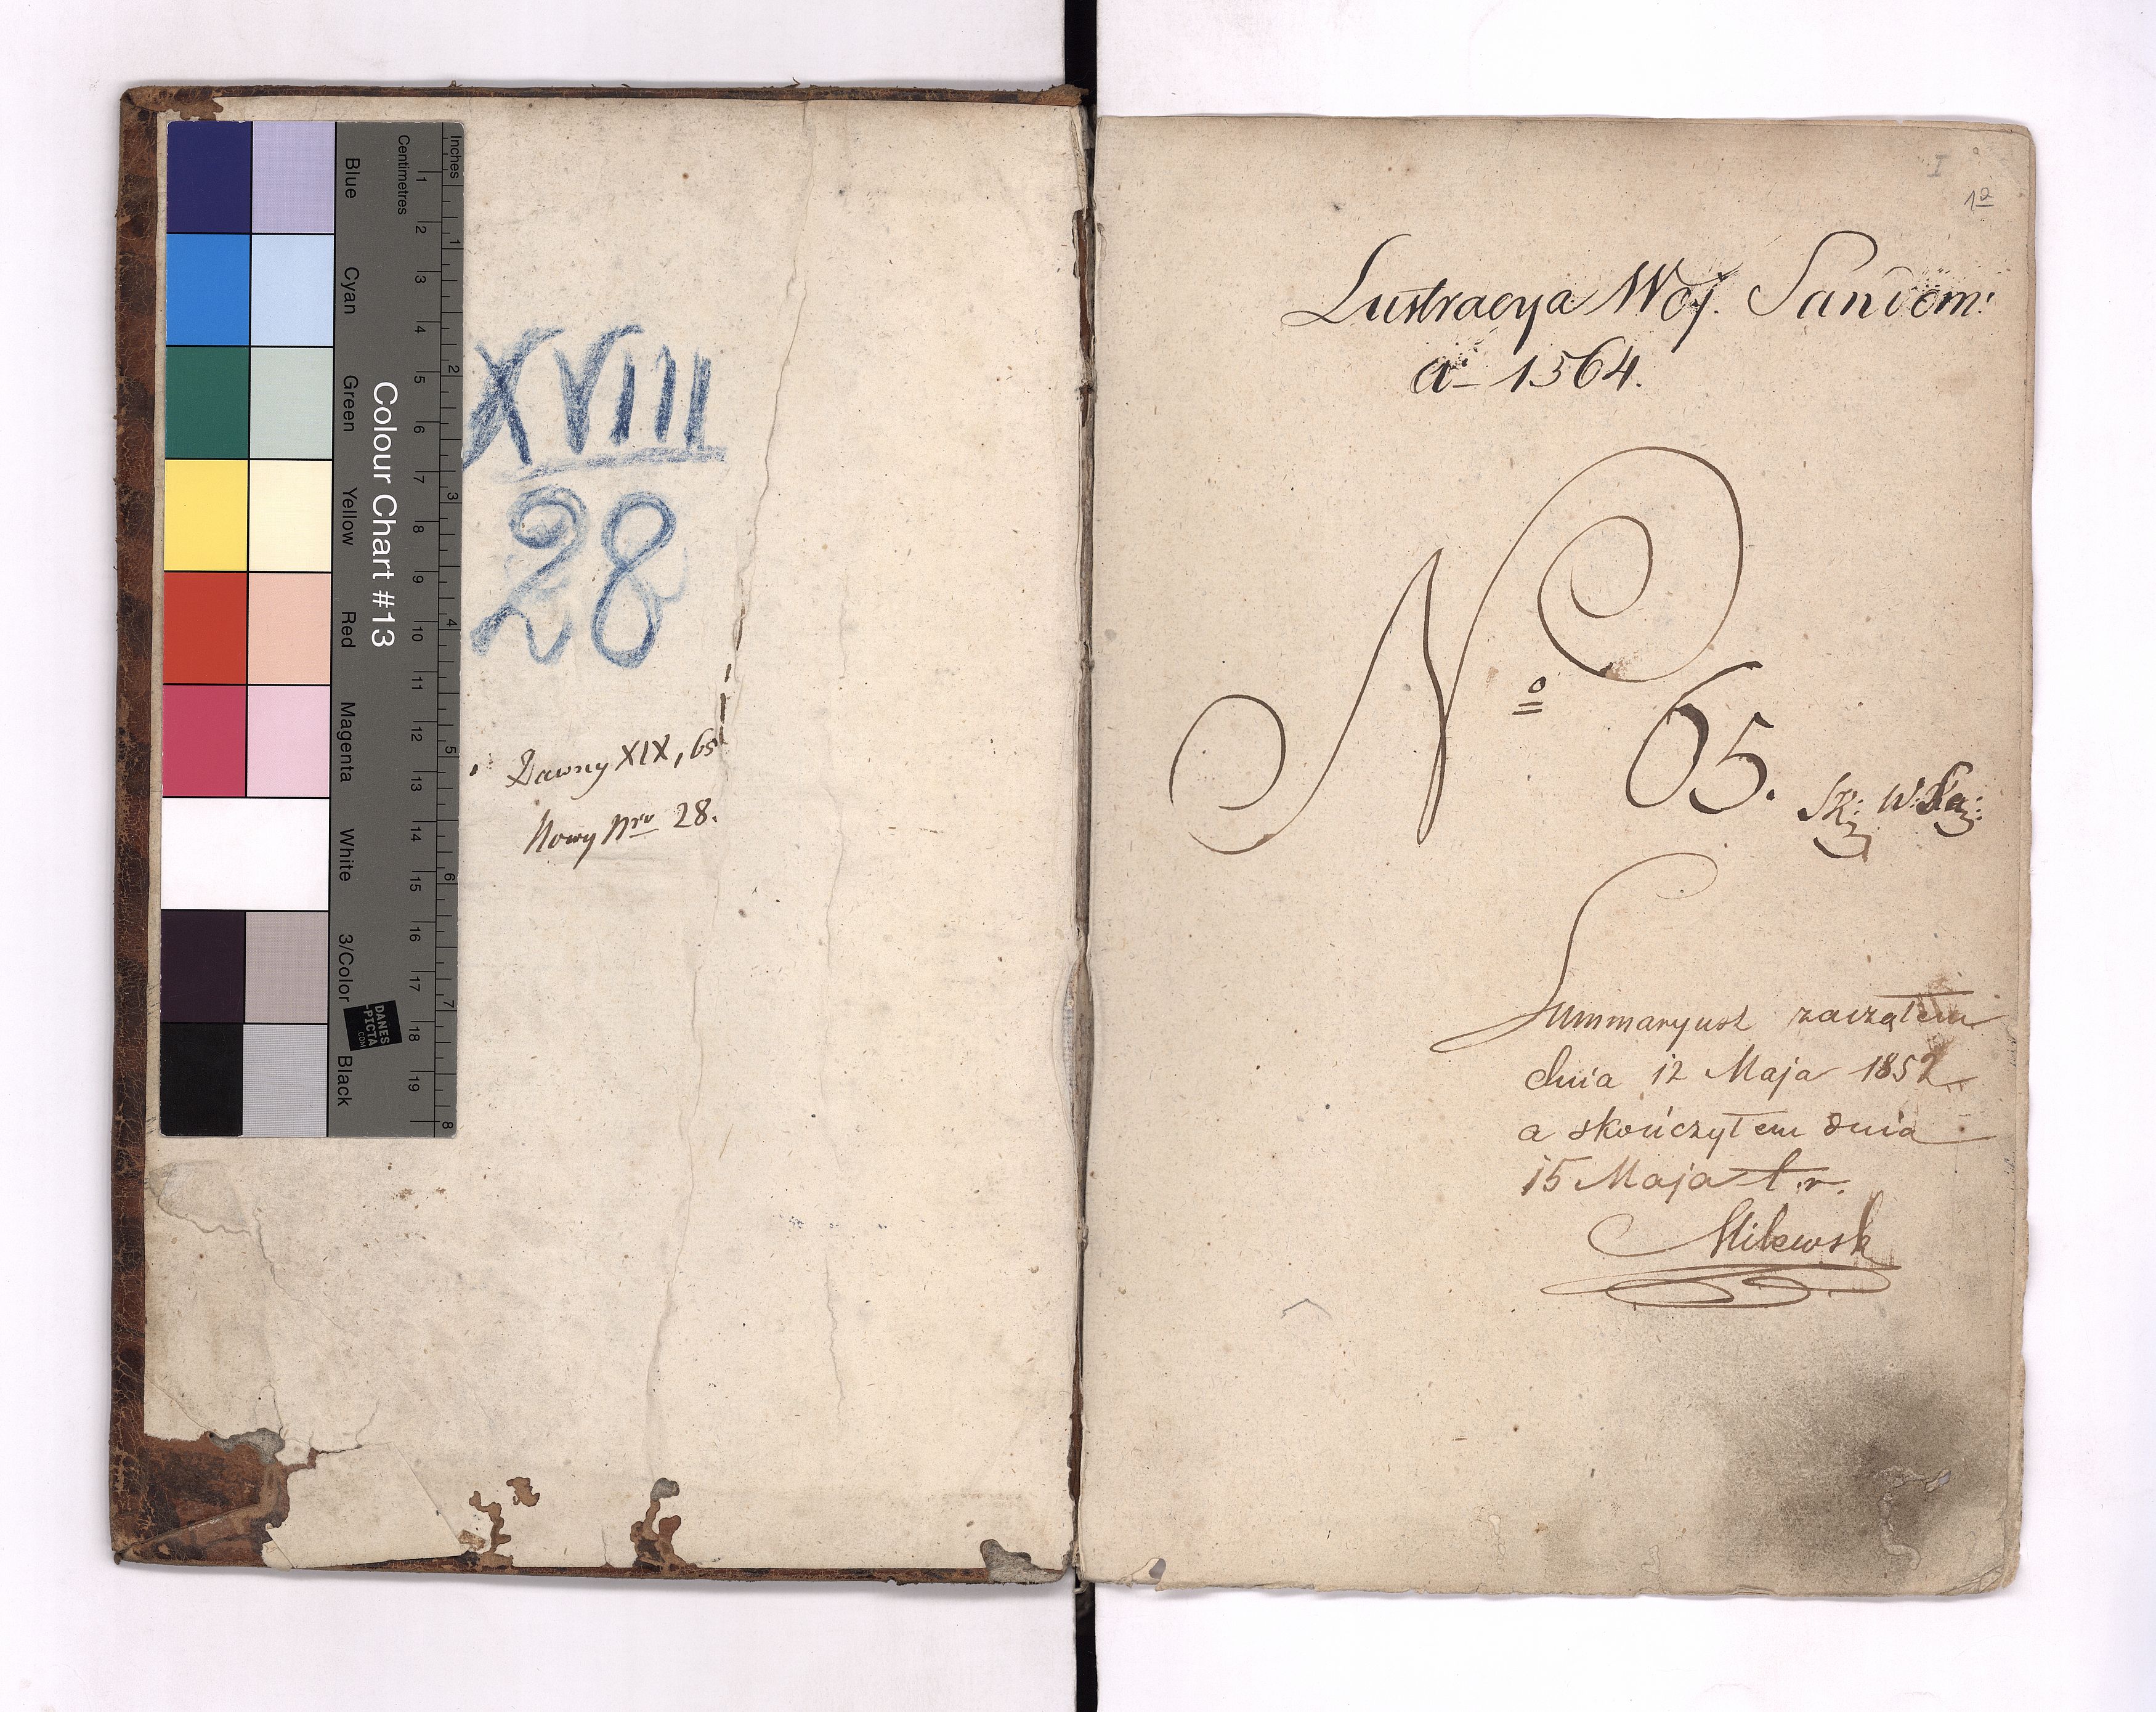 XVIII
28
Dawny XIX, 65
Nowy Nro 28.
Inches
Centimetres
1 2 3 4 5 6 7 8 9 10 11 12 13 14 15 16 17 18 19
1 2 3 4 5 6 7 8
Colour Chart #13
Blue
Cyan
Green
Yellow
Red
Magenta
White
3/Color
Black
DANES
-PICTA
.COM
I
Lustracya Woj. Sandom:
a- 1564.
No 65.
Summaryusz zacząłem
dnia 12 Maja 1852
a skończyłem dnia
15 Maja t.r.
Milewsk